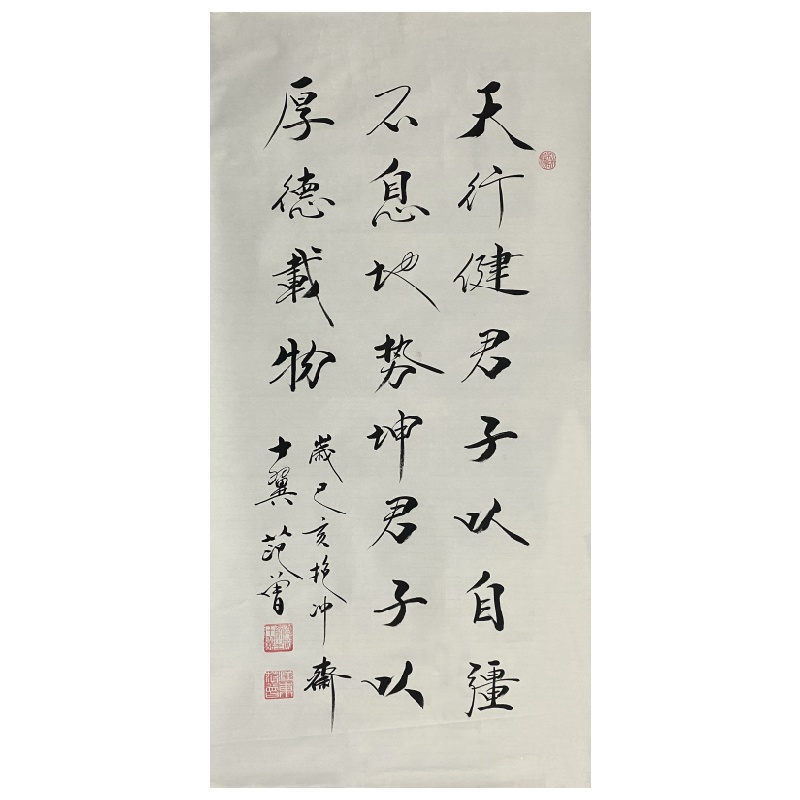 天行健君子以自疆
不息地势坤君子以
厚德载物
歲己亥抱冲齋
十翼范曾